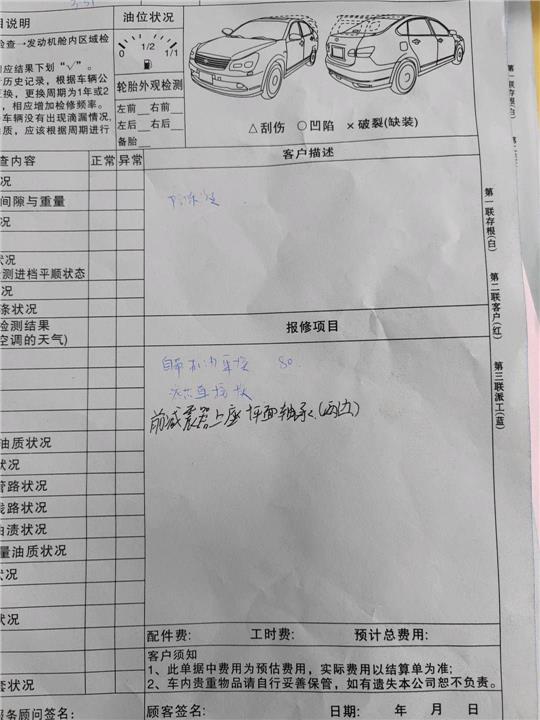 目说明
油位状况
检查→发动机舱内区域检
0 1/2 1/1
相应结果下划“√”。
历史记录，根据车辆公
更换，更换周期为1年或2
，相应增加检修频率。
车辆没有出现滴漏情况，
油质，应该根据周期进行
轮胎外观检测
左前 右前
左后 右后
备胎
△刮伤 ○凹陷 ×破裂(缺装)
查内容 正常 异常
客户描述
况
间隙与重量
况
状况
检测进档平顺状态
况
条状况
检测结果
空调的天气)
报修项目
自带机油 80
前减震器上座 平面轴承(两边)
油质状况
状况
管路状况
线路状况
油渍状况
量油质状况
状况
状况
套状况
配件费: 工时费: 预计总费用:
客户须知
1、此单据中费用为预估费用，实际费用以结算单为准;
2、车内贵重物品请自行妥善保管，如有遗失本公司恕不负责。
服务顾问签名: 顾客签名: 日期: 年 月 日
第一联存根(白)
第二联客户(红)
第三联派工(蓝)
第一联存根(白)